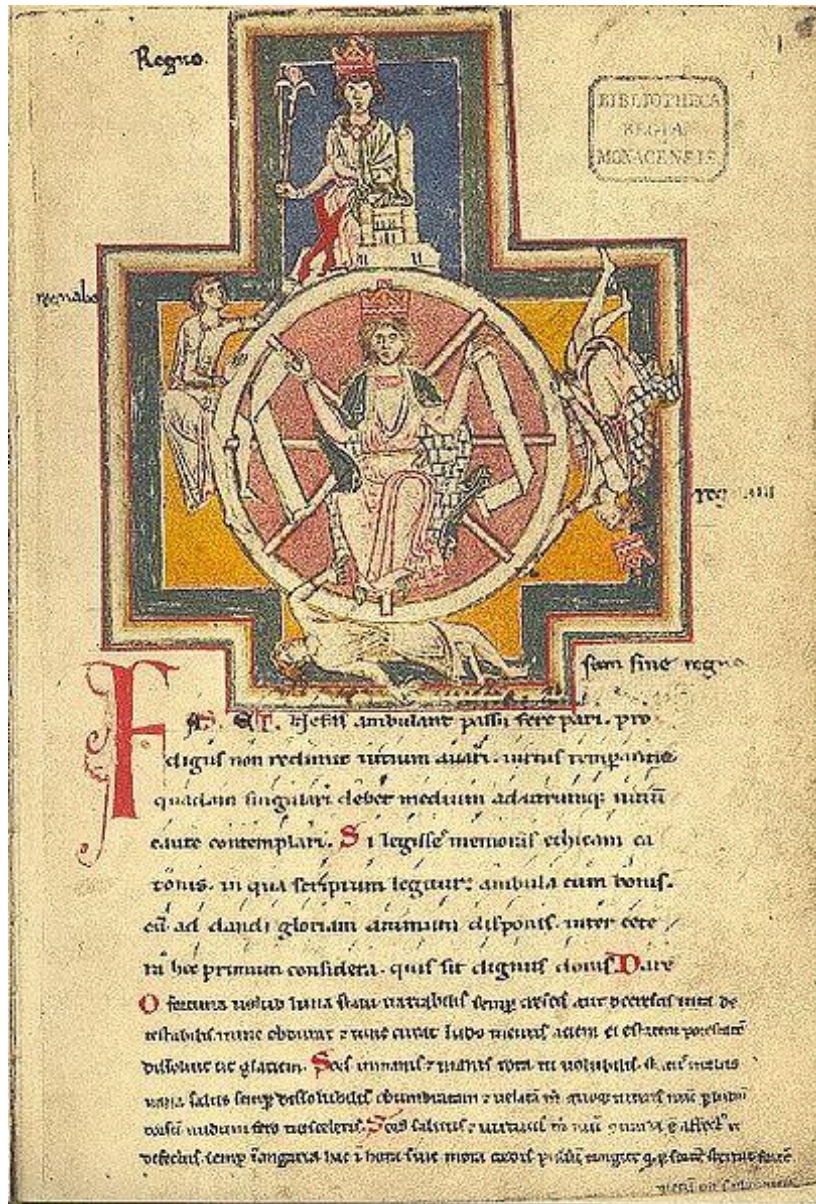 Regno.
BIBLIOTHECA
REGIA
MONACENSIS
regnabo
sum sine regno
FAS ET Nefas ambulant passu fere pari. pro
digus non redimit uitium auari. uirtus temperantie
quadam singulari debet medium ad utrumque uitium
caute contemplari. Si legisse memoras ethicam ca
tonis. in qua scriptum legitur: ambula cum bonis.
cum ad dandi gloriam animum disponis. inter cete
ra hec primum considera. quis sit dignus donis. Dare
O fortuna uelud luna statu uariabilis semper crescis aut decrescis uita de
testabilis nunc obdurat & tunc curat ludo mentis aciem
dissoluit ut glaciem. Sors inmanis & inanis rota tu uolubilis. status malus
uana salus semper dissolubilis obumbratam & uelatam
dorsum nudum fero tui sceleris. Sors salutis & uirtutis
defectus. semper in angaria hac in hora sine mora